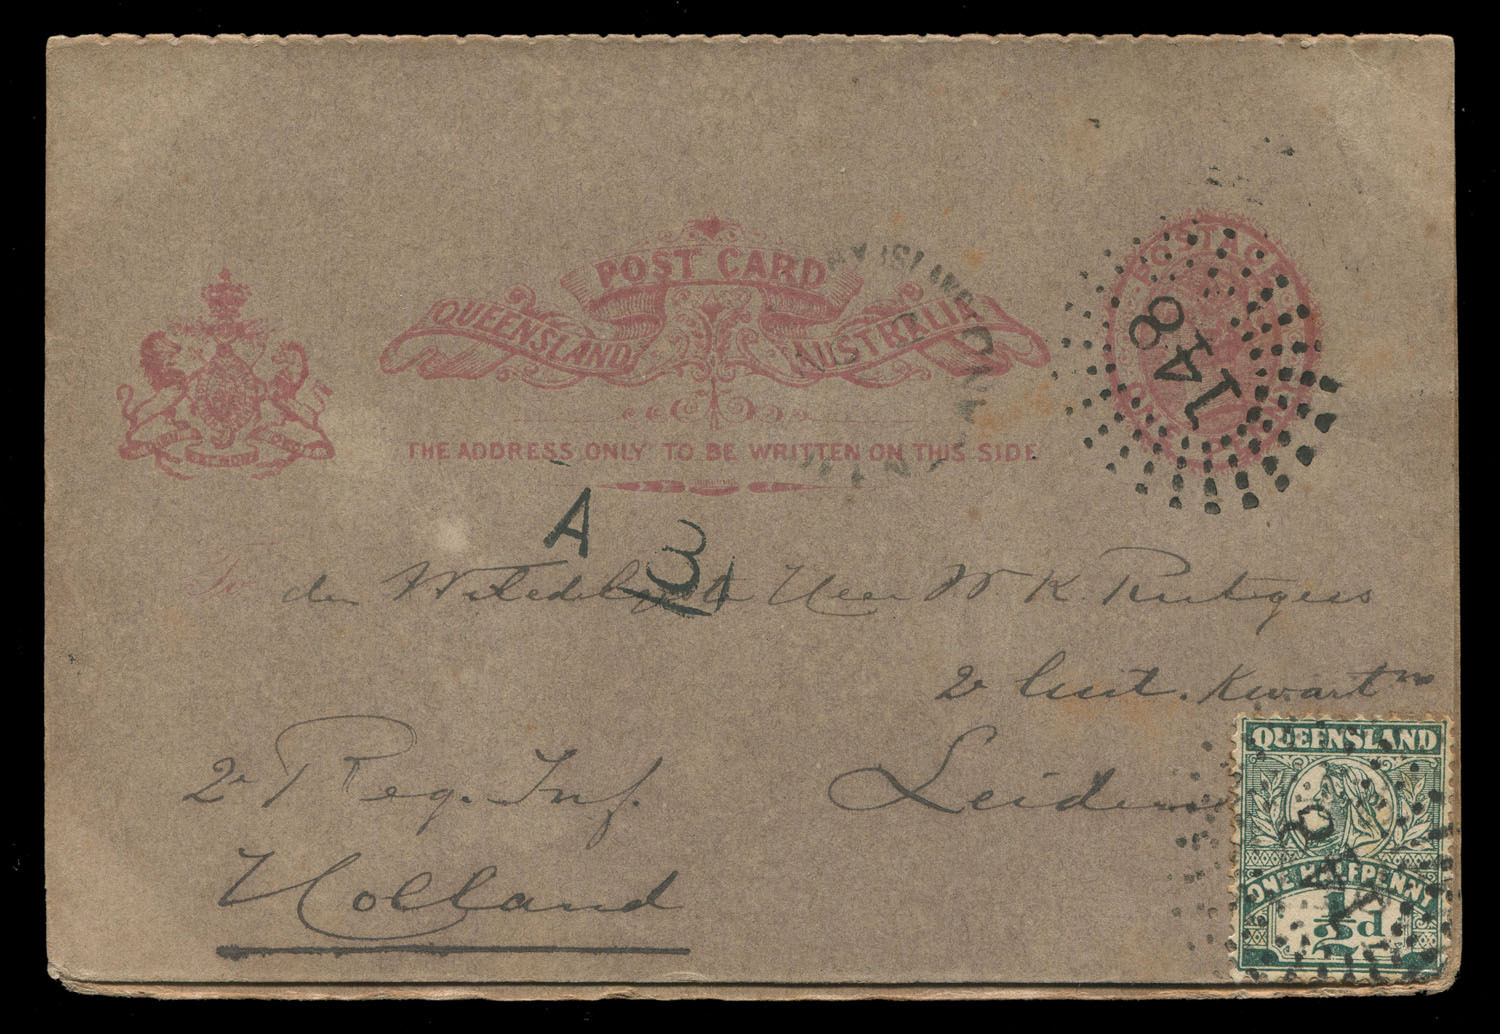 POST CARD
QUEENSLAND AUSTRALIA
POSTAGE
ONE PENNY
148
THE ADDRESS ONLY TO BE WRITTEN ON THIS SIDE
A
3
To den Weledelgeb Heer W. K. Rutgers
2e luit. Kwartm
2e Reg. Inf. Leiden
Holland
QUEENSLAND
ONE HALFPENNY
½d